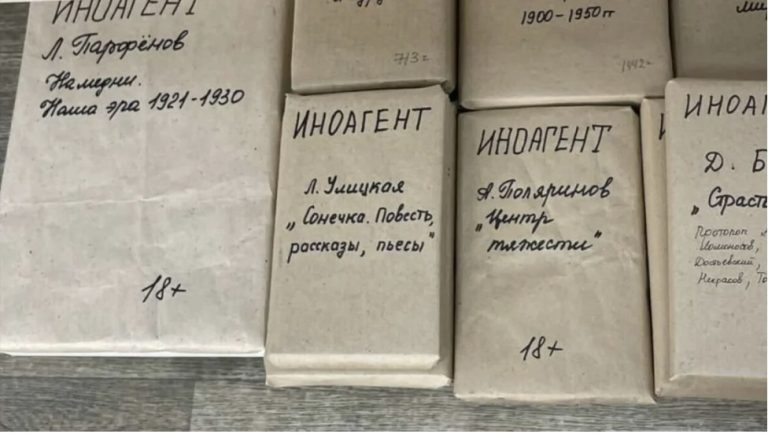 ИНОАГЕНТ
Л. Парфёнов
Намедни.
Наша эра 1921-1930
18+
713г
1900-1950гг
1442г
ИНОАГЕНТ
Л. Улицкая
„Сонечка. Повесть,
рассказы, пьесы"
ИНОАГЕНТ
А. Поляринов
„Центр
тяжести"
18+
ИНОАГ
Д. Б
„Страст
Протопоп
Достоевский,
Некрасов, То